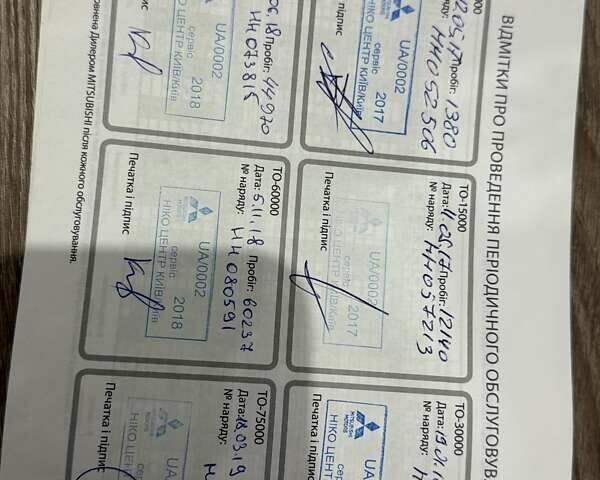 ВІДМІТКИ ПРО ПРОВЕДЕННЯ ПЕРІОДИЧНОГО ОБСЛУГОВУВ
05.17 Пробіг: 1380
№ наряду: НН052506
UA/0002
сервіс 2017
НІКО ЦЕНТР КИЇВ/Київ
підпис
ТО-15000
Дата: Пробіг: 12140
№ наряду: НН057213
UA/0002
сервіс 2017
НІКО ЦЕНТР КИЇВ/Київ
Печатка і підпис
ТО-30000
Дата:
№ наряду:
MITSUBISHI MOTORS
НІКО ЦЕНТР
Печатка і підпис
06.18 Пробіг: 44970
НН073815
UA/0002
сервіс 2018
НІКО ЦЕНТР КИЇВ/Київ
підпис
ТО-60000
Дата: 5.11.18 Пробіг: 60237
№ наряду: НН080591
UA/0002
сервіс 2018
НІКО ЦЕНТР КИЇВ/Київ
Печатка і підпис
ТО-75000
Дата: 18.03.19
№ наряду: Н
UA
сервіс
НІКО ЦЕНТР
Печатка і підпис
Дилером MITSUBISHI після кожного обслуговування.